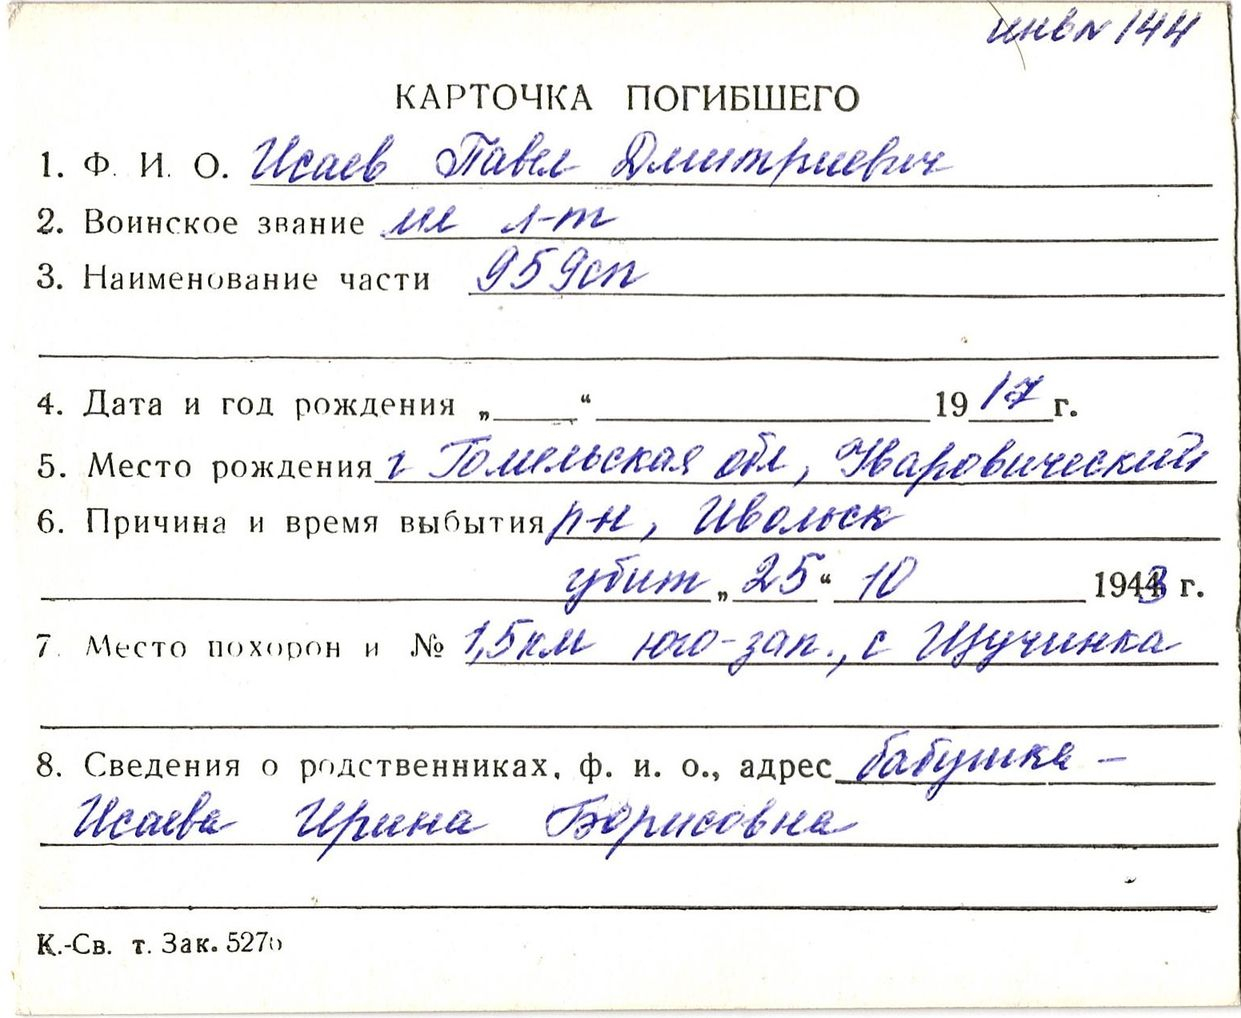 инв № 144
КАРТОЧКА ПОГИБШЕГО
1. Ф. И. О. Исаев Павел Дмитриевич
2. Воинское звание мл л-т
3. Наименование части 959сп
4. Дата и год рождения „ “ 1917 г.
5. Место рождения г Гомельская обл, Уваровический
6. Причина и время выбытия р-н, Ивольск
убит „25“ 10 1943 г.
7. Место похорон и № 1,5км юго-зап., с Щучинка
8. Сведения о родственниках, ф. и. о., адрес бабушка –
Исаева Ирина Борисовна
К.-Св. т. Зак. 527